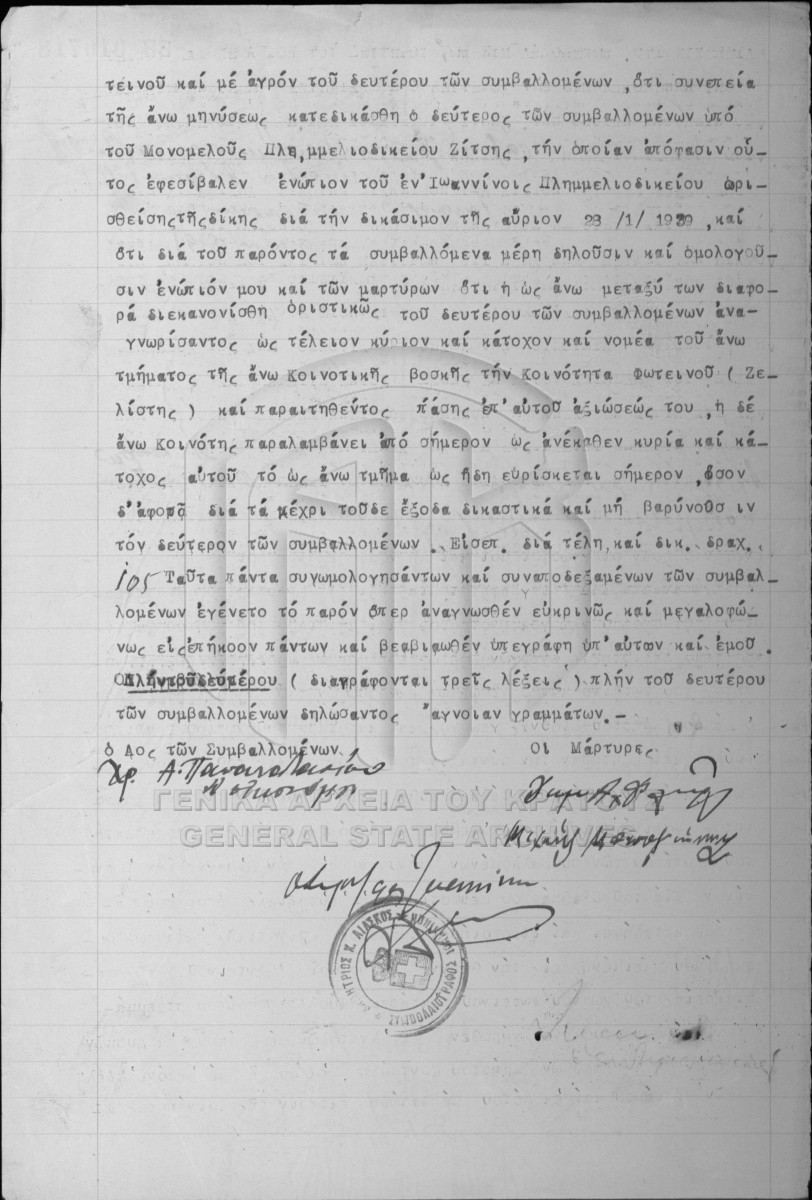 τεινοῦ καί μέ ἀγρόν τοῦ δευτέρου τῶν συμβαλλομένων ,ὅτι συνεπεία
τῆς ἄνω μηνύσεως κατεδικάσθη ὁ δεύτερος τῶν συμβαλλομένων ὑπό
τοῦ Μονομελοῦς Πλη,μμελιοδικείου Ζίτσης ,τήν ὁποίαν ἀπόφασιν οὗ-
τος ἐφεσίβαλεν ἐνώπιον τοῦ ἐν Ἰωαννίνοις Πλημμελιοδικείου ὡρι-
σθείσηςτῆςδίκης διά τήν δικάσιμον τῆς αὔριον 28 /1/ 1939 ,καί
ὅτι διά τοῦ παρόντος τά συμβαλλόμενα μέρη δηλοῦσιν καί ὁμολογοῦ-
σιν ἐνώπιόν μου καί τῶν μαρτύρων ὅτι ἡ ὡς ἄνω μεταξύ των διαφο-
ρά διεκανονίσθη ὁριστικῶς τοῦ δευτέρου τῶν συμβαλλομένων ἀνα-
γνωρίσαντος ὡς τέλειον κύριον καί κάτοχον καί νομέα τοῦ ἄνω
τμήματος τῆς ἄνω Κοινοτικῆς βοσκῆς τήν Κοινότητα Φωτεινοῦ ( Ζε-
λίστης ) καί παραιτηθέντος πάσης ἐπ'αὐτοῦ ἀξιώσεώς του , ἡ δέ
ἄνω Κοινότης παραλαμβάνει ἀπό σήμερον ὡς ἀνέκαθεν κυρία καί κά-
τοχος αὐτοῦ τό ὡς ἄνω τμῆμα ὡς ἤδη εὑρίσκεται σήμερον ,ὅσον
δ'ἀφορᾷ διά τά μέχρι τοῦδε ἔξοδα δικαστικά καί μή βαρύνουσ ιν
τόν δεύτερον τῶν συμβαλλομένων . Εἰσεπ. διά τέλη,καί δικ. δραχ.
105 Ταῦτα πάντα συνωμολογησάντων καί συναποδεξαμένων τῶν συμβαλ-
λομένων ἐγένετο τό παρόν ὅπερ ἀναγνωσθέν εὐκρινῶς καί μεγαλοφώ-
νως εἰςἐπήκοον πάντων καί βεαβιωθέν ὑπεγράφη ὑπ'αὐτων καί ἐμοῦ .
Πλήντοῦδευτέρου ( διαγράφονται τρεῖς λέξεις ) πλήν τοῦ δευτέρου
τῶν συμβαλλομένων δηλώσαντος ἄγνοιαν γραμμάτων.-
ὁ Αος τῶν Συμβαλλομένων
Οἱ Μάρτυρες
Χρ. Α. Παπαναστασίου
ΓΕΝΙΚΑ ΑΡΧΕΙΑ ΤΟΥ ΚΡΑΤΟΥΣ
GENERAL STATE ARCHIVES
ΔΗΜΗΤΡΙΟΣ Κ. ΛΙΑΣΚΟΣ
ΣΥΜΒΟΛΑΙΟΓΡΑΦΟΣ